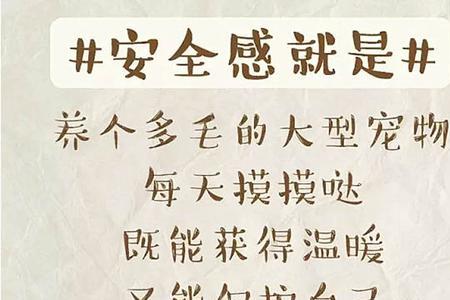 #安全感就是#
养个多毛的大型宠物
每天摸摸哒
既能获得温暖
又能保护自己